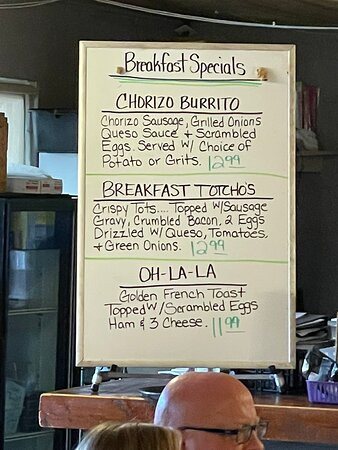 Breakfast Specials
CHORIZO BURRITO
Chorizo Sausage, Grilled Onions
Queso Sauce + Scrambled
Eggs. Served W/ Choice of
Potato or Grits. 12.99
BREAKFAST TOTCHO'S
Crispy Tots.... Topped W/Sausage
Gravy, Crumbled Bacon, 2 Eggs
Drizzled W/Queso, Tomatoes,
+ Green Onions. 12.99
OH-LA-LA
Golden French Toast
Topped W/Scrambled Eggs
Ham & 3 Cheese. 11.99